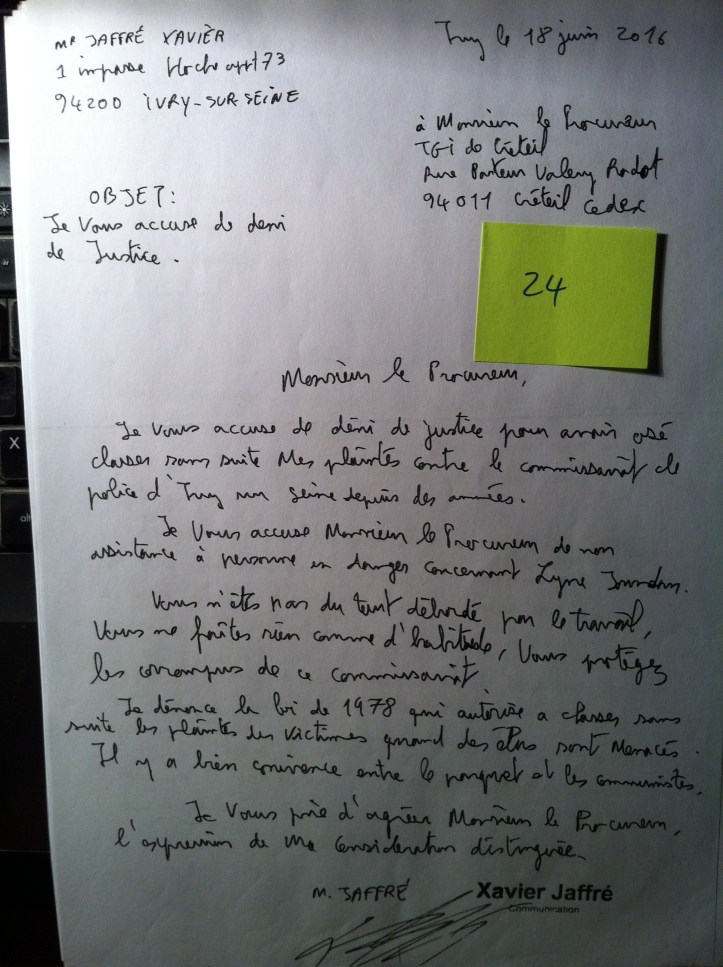 Mr JAFFRÉ XAVIER
1 impasse Hoche appt 73
94200 IVRY-SUR-SEINE
Ivry le 18 juin 2016
à Monsieur le Procureur
TGi de Créteil
Rue Pasteur Valery Radot
94011 Créteil Cedex
OBJET:
Je Vous accuse de deni
de Justice.
24
Monsieur le Procureur,
Je Vous accuse de déni de justice pour avoir osé
classer sans suite Mes plaintes contre le commissariat de
police d'Ivry sur Seine depuis des années.
Je Vous accuse Monsieur le Procureur de non
assistance à personne en danger concernant Lyne Jourdan.
Vous n'êtes pas du tout débordé par le travail,
Vous ne faîtes rien comme d'habitude, Vous protégez
les corrompus de ce commissariat.
Je dénonce la loi de 1978 qui autorise a classer sans
suite les plaintes des victimes quand des élus sont Menacés.
Il y a bien conivence entre le parquet et les communistes.
Je Vous prie d'agréer Monsieur le Procureur,
l'expression de Ma Consideration distinguée.
M. JAFFRÉ
Xavier Jaffré
Communication
X
alt